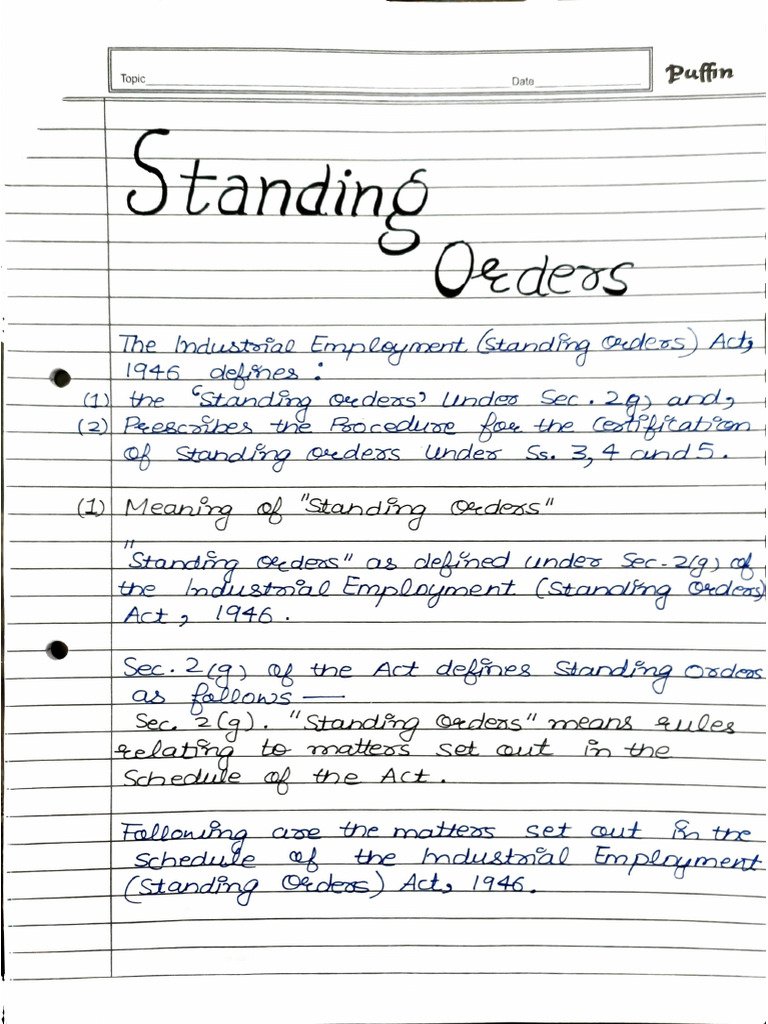 Topic Date Puffin
Standing
Orders
The Industrial Employment (Standing Orders) Act,
1946 defines :
(1) the 'Standing Orders' Under Sec. 2g) and,
(2) Prescribes the Procedure for the Certifitation
of Standing Orders Under Ss. 3, 4 and 5.
(1) Meaning of "Standing Orders"
"Standing Orders" as defined under Sec. 2(g) of
the Industrial Employment (Standing Orders)
Act, 1946.
Sec. 2(g) of the Act defines Standing Orders
as follows —
Sec. 2(g). "Standing Orders" means rules
relating to matters set out in the
Schedule of the Act.
Following are the matters set out in the
Schedule of the Industrial Employment
(Standing Orders) Act, 1946.